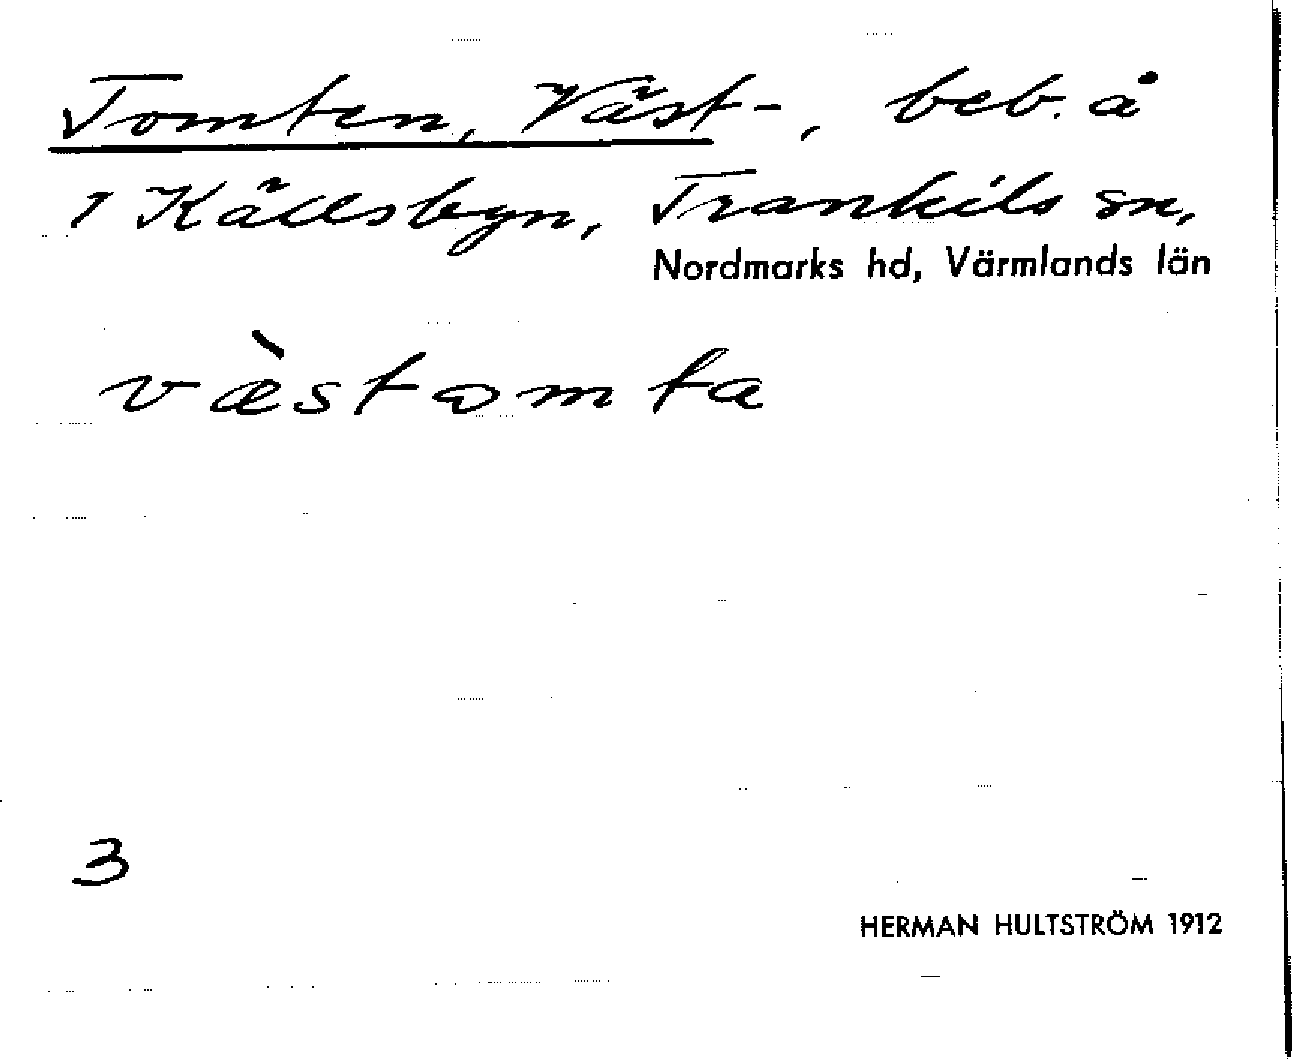 Tomten, Väst-, beb. å
1 Källsbyn, Trankils sn,
Nordmarks hd, Värmlands län
væ̀stωmta
3
HERMAN HULTSTRÖM 1912